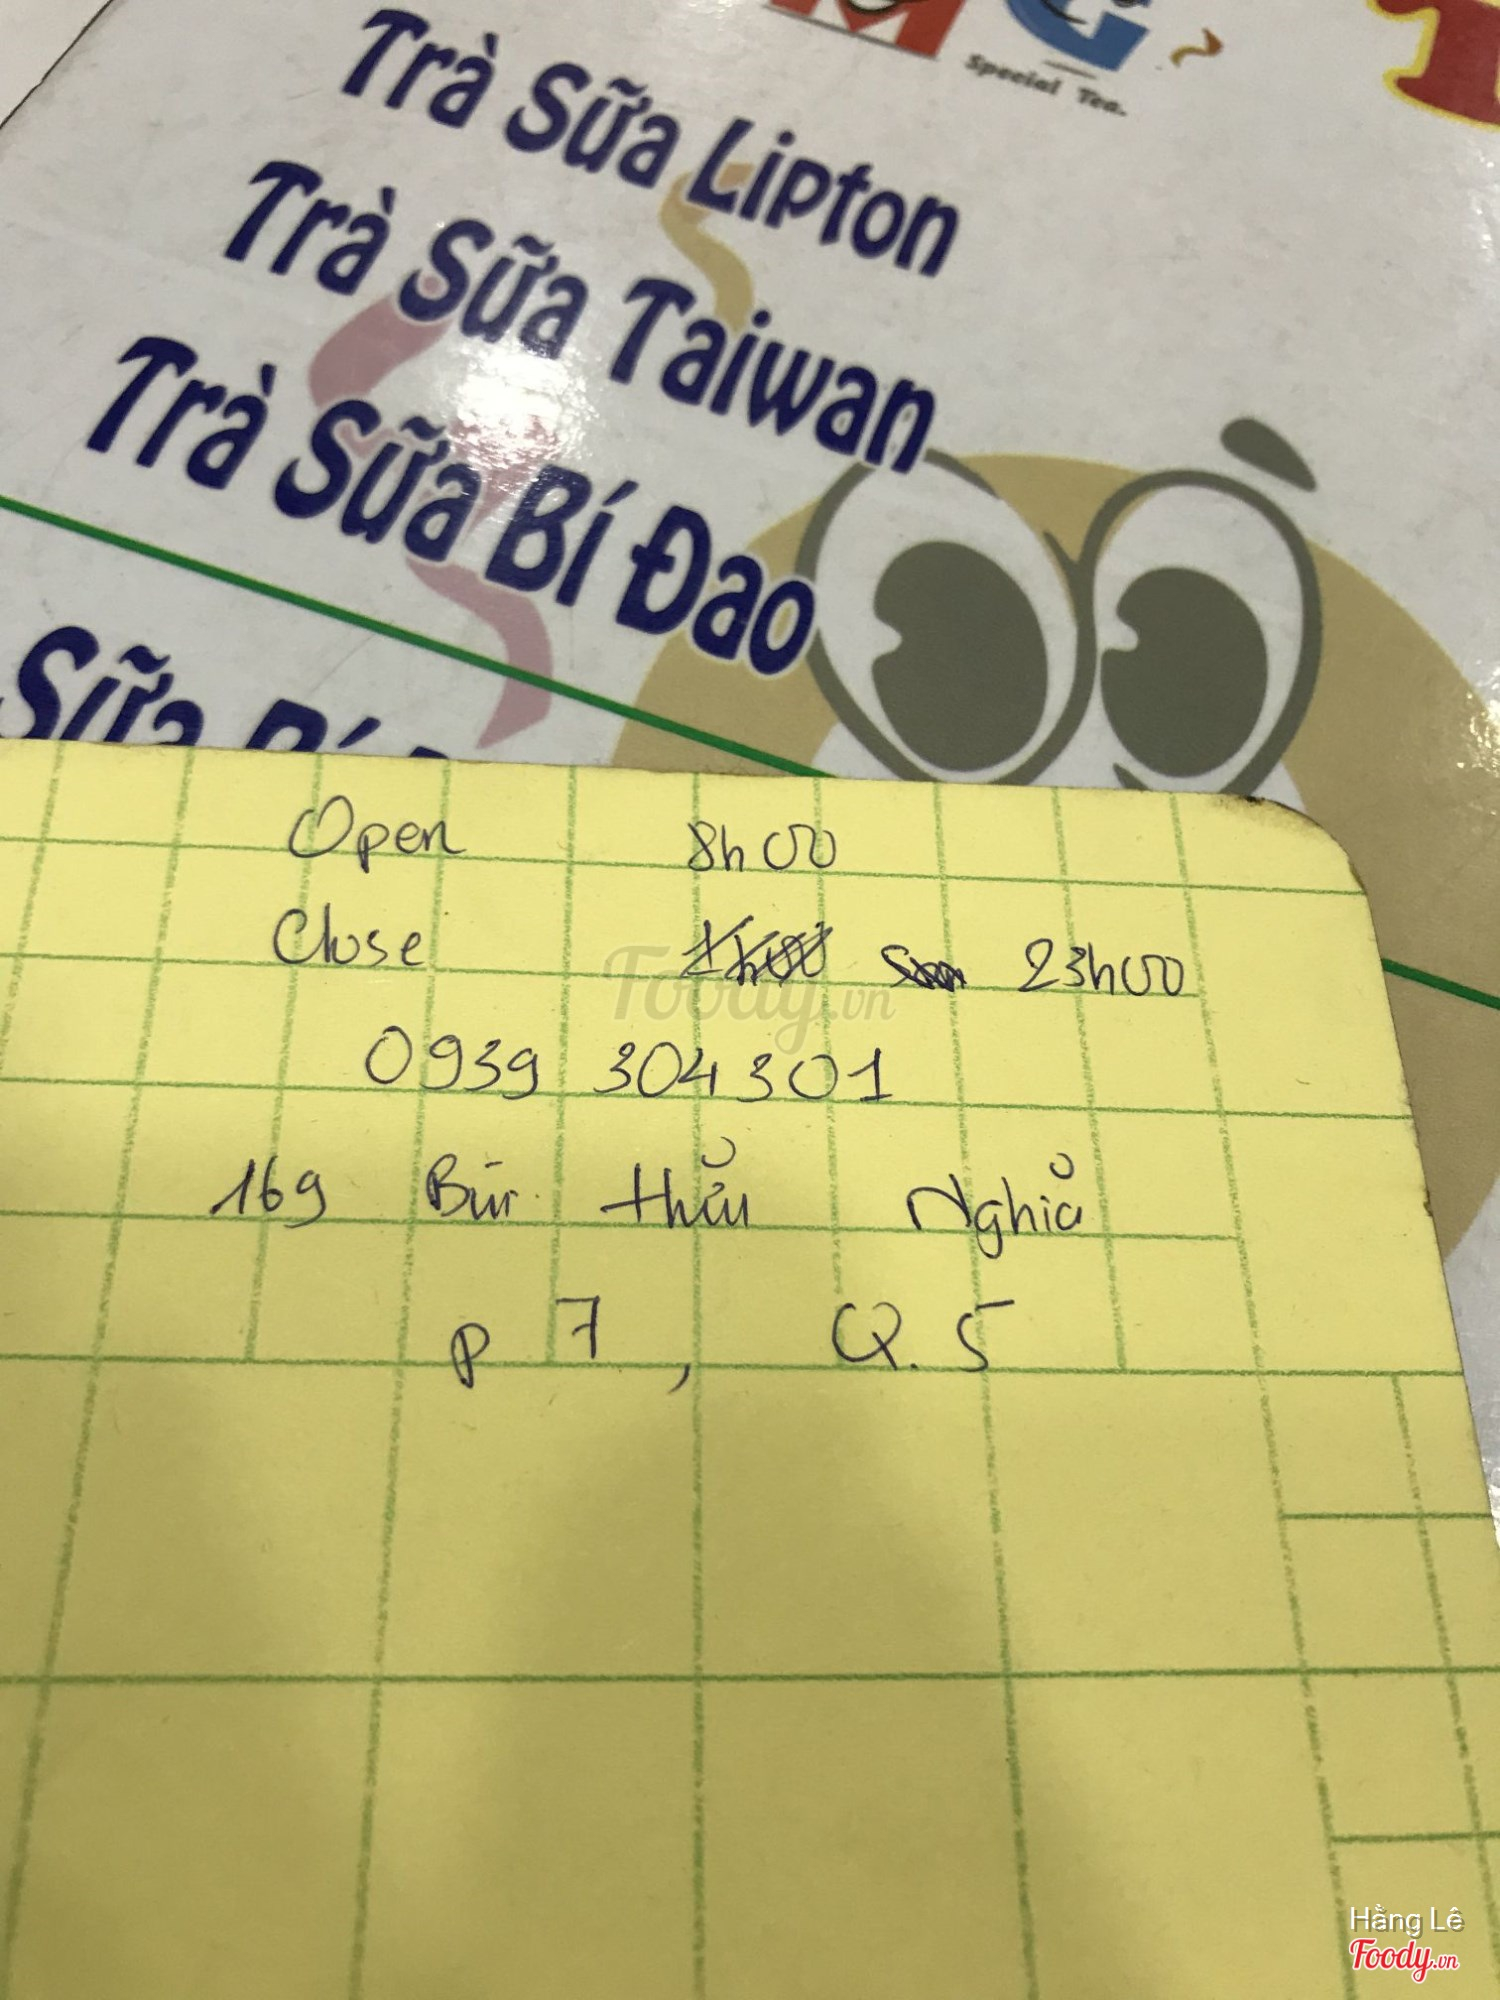 MG
Special Tea.
T
Trà Sữa Lipton
Trà Sữa Taiwan
Trà Sữa Bí Đao
Sữa Bí
Open 8h00
Close 23h00
0939 304301
169 Bùi Hữu Nghĩa
P 7, Q. 5
Foody.vn
Hằng Lê
Foody.vn